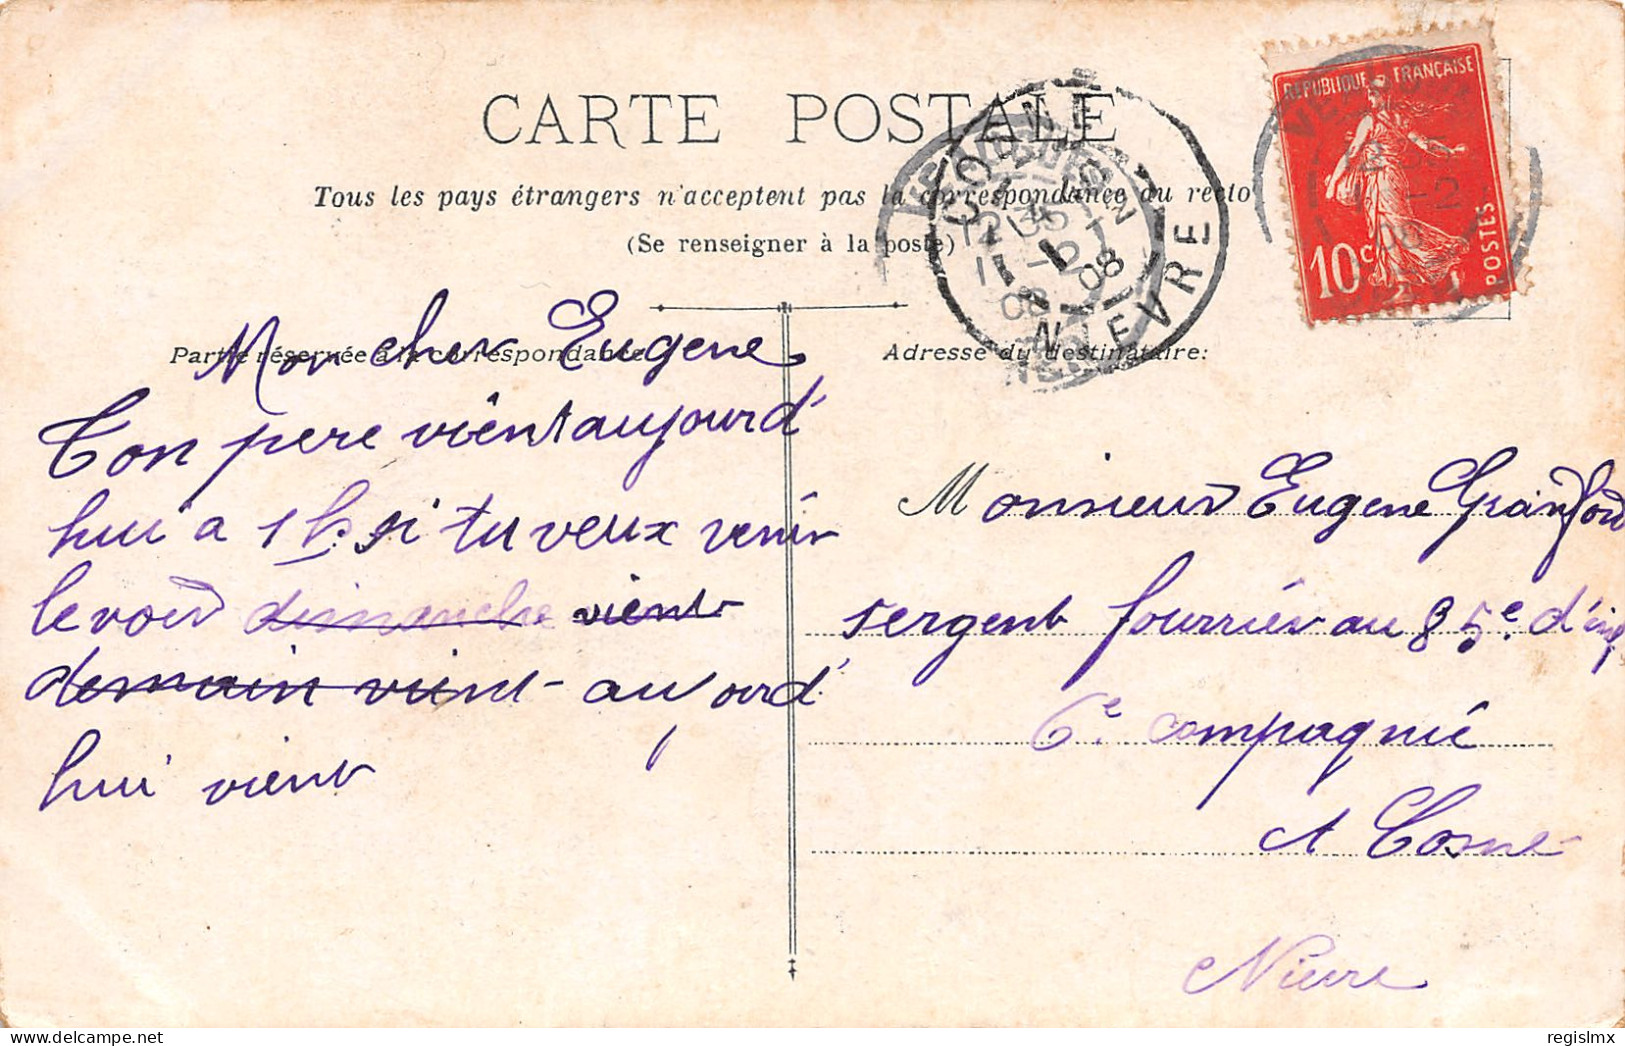 CARTE POSTALE
Tous les pays étrangers n'acceptent pas la correspondance au recto
(Se renseigner à la poste)
RÉPUBLIQUE FRANÇAISE
10c
POSTES
COSNE
NIEVRE
Partie réservée à la correspondance
Adresse du destinataire:
Mon cher Eugene
Ton pere vient aujourd'
hui a 1 h si tu veux venir
le voir dimanche vient
demain vient aujourd'
hui vient
Monsieur Eugene
sergent fourrier au 85e d'inf
6e compagnie
A Cosne
Nievre
regislmx